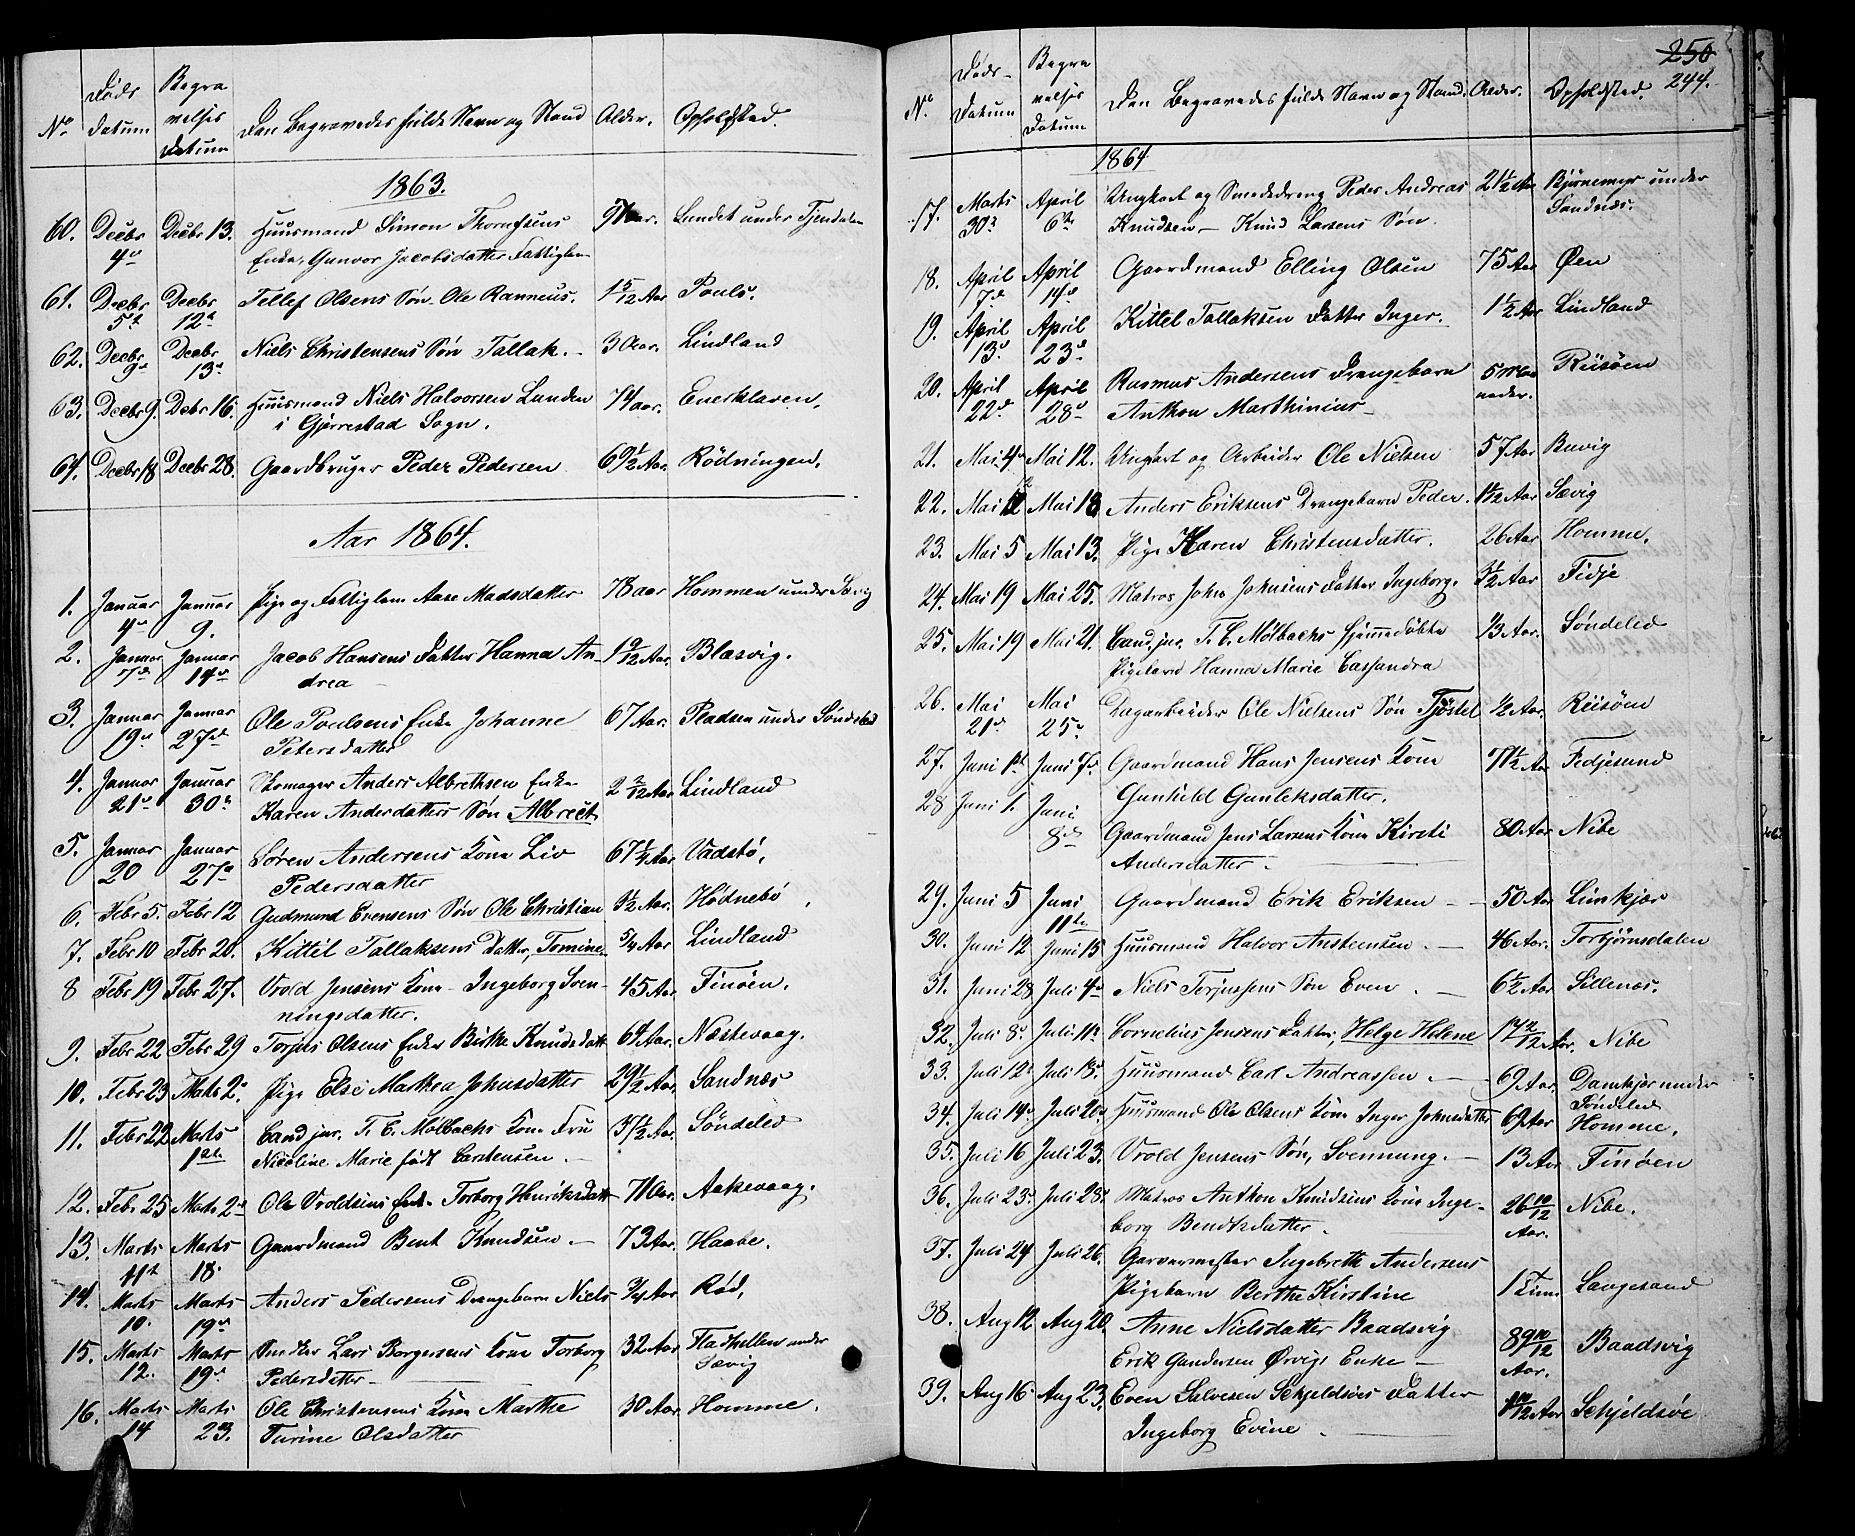 Døds Begra
No datum velses Den Begravedes fulde Navn og Stand Alder. Opholdsted.
Datum
1863.
60. Decbr Decbr 13. Huusmand Simon Thorufsens 91 aar. Lundet under Tjendalen
4de Enke, Gunvor Jacobsdatter Fattiglem
61. Decbr Decbr Tellef Olsens Søn Ole Ranneus. 1 5/12 Aar Pouls.
5te 12te
62. Decbr Decbr Niels Christensens Søn Tallak. 3 Aar. Lindland
9de 13de
63. Decbr 9. Debr 16. Huusmand Niels Halvorsen Lunden 74 aar. Enerklaven.
i Gjerrestad Sogn.
64. Decbr 18 Decbr 28. Gaardbruger Peder Pedersen 69 1/2 Aar. Rødningen.
Aar 1864.
1. Januar Januar Pige og Fattiglem Aase Madsdatter 78 aar Hommen under Sævig
4de 9.
2. Januar Januar Jacob Hansens Datter Hanna An- 1 9/12 Aar. Blæsvig.
7de 14de drea
3. Januar Januar Ole Poulsens Enke Johanne 67 Aar. Pladsen under Søndeled
19de 27de Petersdatter
4. Januar Januar Skomager Anders Albrethsen Enke 2 2/12 Aar Lindland
21de 30te Karen Andersdatters Søn Albrect
5. Januar Januar Søren Andersens Kone Liv 67 1/4 Aar. Vadstø.
20 27de Pedersdatter
6. Febr 5. Febr 12 Gudmund Evensens Søn Ole Christian 3 1/2 Aar. Hødnebø
7. Febr 10 Febr 20. Kittil Tallaksens Datter, Tomine 5/4 Aar Lindland
8 Febr 19 Febr 27. Vrold Jensens Kone Ingeborg Sven- 45 Aar. Finøen.
ningsdatter.
9. Febr 22 Febr 29 Torjus Olsens Enke Birthe Knudsdatt 64 Aar. Næstevaag.
10. Febr 23 Marts 2. Pige Else Marthea Johnsdatter 29 1/2 Aar. Sandnæs
11. Febr 22 Marts Cand jur. T. C. Mølbachs Kone Fru 37 1/2 Aar. Søndeled
1st. Nicoline Marie født Carstensen.
12. Febr 25 Marts 2den Ole Vroldsens Enke Torborg Henriksdatt 71 Aar. Aakevaag.
13. Marts Marts Gaardmand Bent Knudsen. 73 Aar. Haabe.
11te 18.
14. Marts Marts Anders Pedersens Drengebarn Niels 3/4 Aar Rød.
10. 19de
15. Marts Marts Snedker Lars Borgersens Kone Torborg 32 Aar Fladhellen under
12. 19de Pedersdatter Sævig
16. Marts Marts Ole Christensens Kone Marthe 30 Aar. Homme.
14 23. Turine Olsdatter
250
244.
Døds- Begra
No. Datum velses Den Begravedes fulde Navn og Stand. Alder. Opholdsted.
Datum
1864
17. Marts April Ungkarl og Smededreng Peder Andreas 21 1/2 Aar Bjørnemyr under
30te 6te Knudsen – Knud Larsens Søn. Sandnæs.
18. April April Gaardmand Elling Olsen 75 Aar Øen
7de 14de
19. April April Kittel Tallaksen Datter Inger. 1 1/2 Aar Lindland
13de 23de
20. April April Rasmus Andersens Drengebarn 5 Maa Riisøen
22de 28de Anthon Marthinius neder.
21. Mai 4de Mai 12. Ungkarl og Arbeider Ole Nielsen 57 Aar Buvig
22. Mai 12 Mai 18 Anders Eriksens Drengebarn Peder. 1 1/2 Aar Sævig
23. Mai 5 Mai 13. Pige Karen Christensdatter. 26 Aar Homme.
24. Mai 19 Mai 25. Matros John Johnsens Datter Ingeborg. 3 1/2 Aar Fidje
25. Mai 19 Mai 21. Cand. jur. T. C. Mølbachs hjemmedøbte 1/3 Aar. Søndeled
Pigebarn Hanna Marie Cassandra
26. Mai Mai Dagarbeider Ole Nielsens Søn Tjøstel 1/2 Aar. Riisøen
21de 25de
27. Juni 1st Juni 7de Gaardmand Hans Jensens Kone 77 1/2 Aar Fedjesund
Gunhild Gunleksdatter.
28 Juni 1. Juni Gaardmand Jens Larsens Kone Kirsti 80 Aar Nibe
8de Andersdatter.
29. Juni 5 Juni Gaardmand Erik Eriksen 50 Aar Limkjær
11te
30. Juni 12 Juni 15 Huusmand Halvor Anstensen. 46 Aar. Torbjørnsdalen
31. Juni 28 Juli 4de Niels Terjessens Søn Even. 6 1/2 Aar Sillenæs.
32. Juli 8de Juli 11te Cornelius Jensens Datter, Helge Helene 17 2/12 Aar. Nibe
33. Juli 12te Juli 18de Huusmand Carl Andreassen. 69 Aar. Damkjær under
Søndeled
34. Juli 14de Juli 20de Huusmand Ole Olsens Kone Inger Johnsdatter 62 Aar Homme.
35. Juli 16 Juli 23. Vrold Jensens Søn, Svennung. 13 Aar Finøen
36. Juli 23de Juli 28de Matros Anthon Knudsens Kone Inge- 26 10/12 Nibe.
borg Bendtsdatter. Aar.
37. Juli 24 Juli 26. Garvermester Ingebreth Andersens
Pigebarn Berthe Kirstine 1 Time Langesand
38. Aug 12 Aug 20. Anne Nielsdatter Baadsvig 89 10/12 Baadsvig
Erik Gundersen Ørvigs Enke Aar.
39. Aug 16 Aug 23. Even Salvesen Schjeldsøes Datter 1 10/12 Aar Schjeldsøe
Ingeborg Evine.